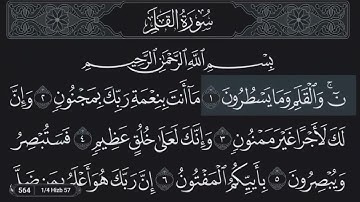 سُورَةُ القَلَمِ
بِسْمِ ٱللَّهِ ٱلرَّحْمَٰنِ ٱلرَّحِيمِ
نٓ ۚ وَٱلْقَلَمِ وَمَا يَسْطُرُونَ ١ مَآ أَنتَ بِنِعْمَةِ رَبِّكَ بِمَجْنُونٍ ٢ وَإِنَّ
لَكَ لَأَجْرًا غَيْرَ مَمْنُونٍ ٣ وَإِنَّكَ لَعَلَىٰ خُلُقٍ عَظِيمٍ ٤ فَسَتُبْصِرُ
وَيُبْصِرُونَ ٥ بِأَييِّكُمُ ٱلْمَفْتُونُ ٦ إِنَّ رَبَّكَ هُوَ أَعْلَمُ بِمَن ضَلَّ
564 1/4 Hizb 57